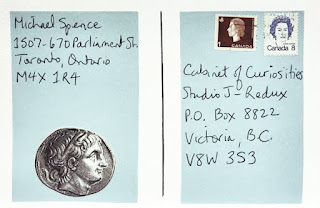 Michael Spence
1507-670 Parliament St.
Toronto, Ontario
M4X 1R4
1
CANADA
Canada 8
Cabinet of Curiosities
Studio J-Redux
P.O. Box 8822
Victoria, B.C.
V8W 3S3